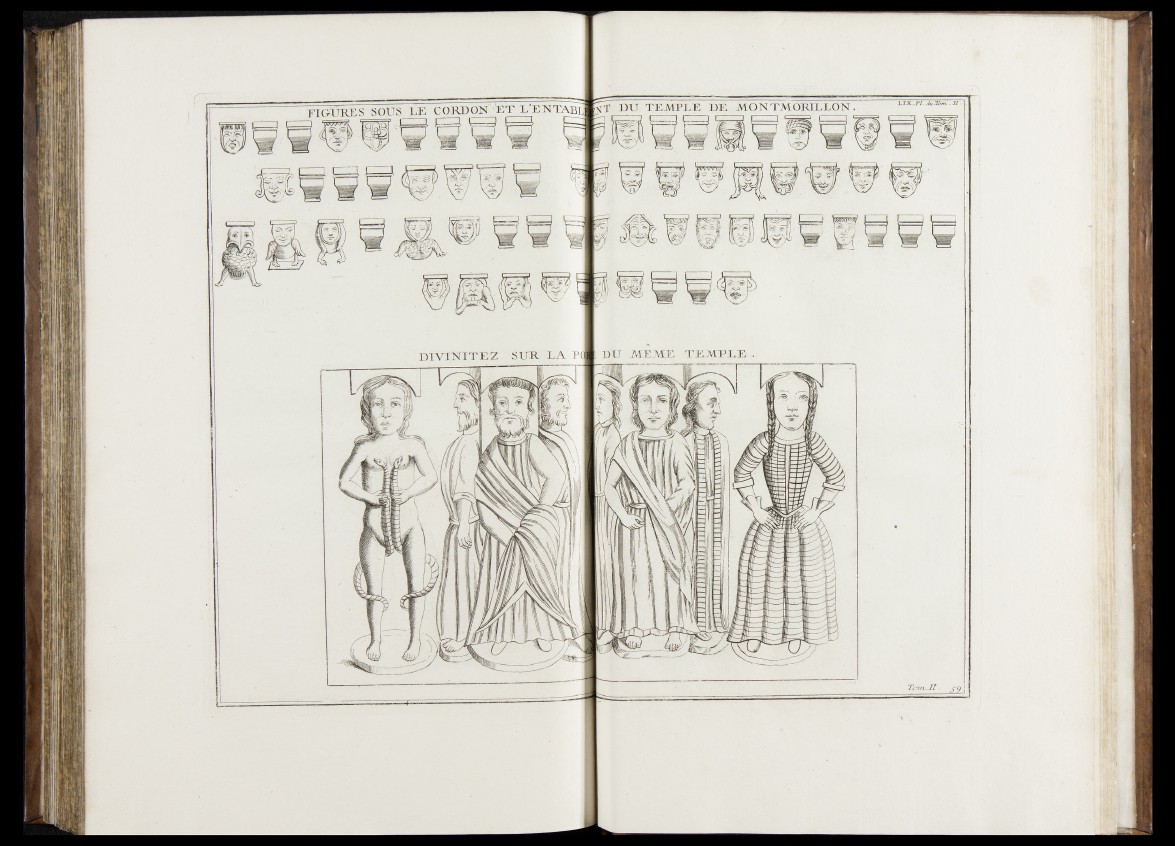 LIX. Pl. du Tom. II
FIGURES SOUS LE CORDON ET L'ENTABL NT DU TEMPLE DE MONTMORILLON.
DIVINITEZ SUR LA DU MÊME TEMPLE.
Tom. II 59